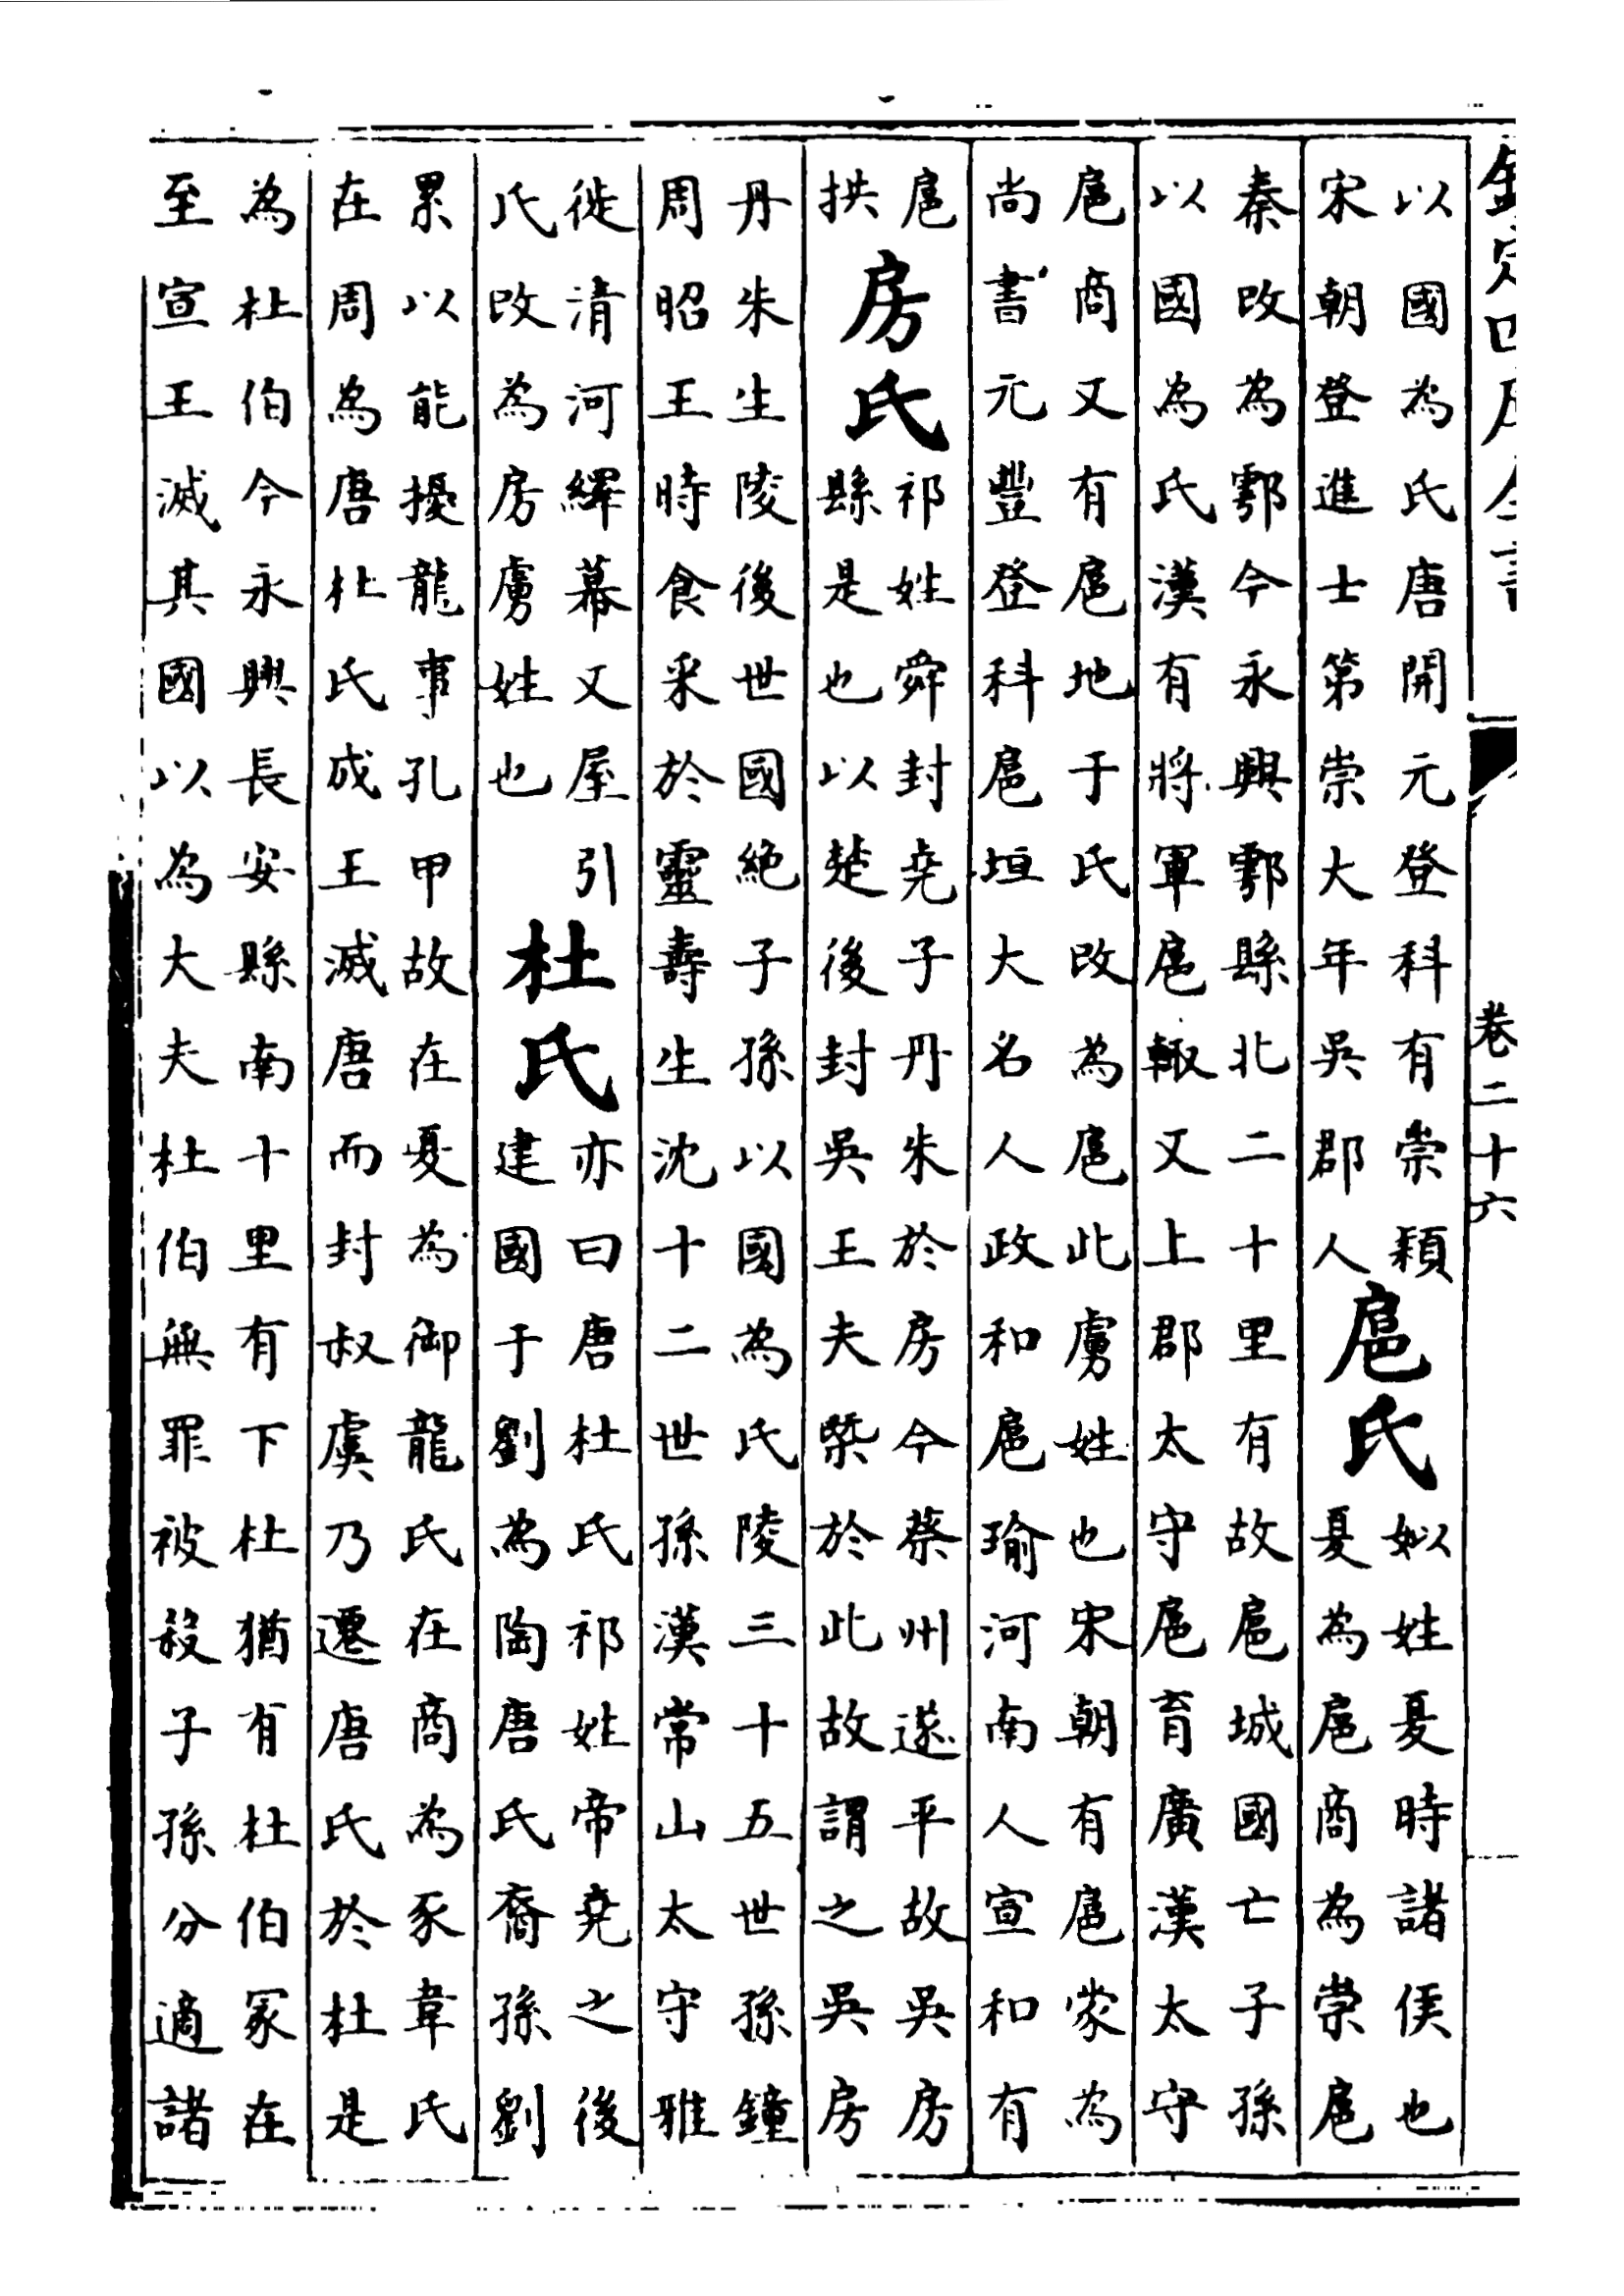 欽定四庫全書
卷二十六
以國為氏唐開元登科有崇穎
宋朝登進士第崇大年吳郡人
扈氏
姒姓夏時諸侯也
夏為扈商為崇扈
秦改為鄠今永興鄠縣北二十里有故扈城國亡子孫
以國為氏漢有將軍扈輙又上郡太守扈育廣漢太守
扈商又有扈地于氏改為扈此虜姓也宋朝有扈蒙為
尚書元豐登科扈垣大名人政和扈瑜河南人宣和有
扈
拱
房氏
祁姓舜封堯子丹朱於房今蔡州遂平故吳房
縣是也以楚後封吳王夫槩於此故謂之吳房
丹朱生陵後世國絶子孫以國為氏陵三十五世孫鐘
周昭王時食采於靈壽生沈十二世孫漢常山太守雅
徙清河繹幕又屋引
氏改為房虜姓也
杜氏
亦曰唐杜氏祁姓帝堯之後
建國于劉為陶唐氏裔孫劉
累以能擾龍事孔甲故在夏為御龍氏在商為豕韋氏
在周為唐杜氏成王滅唐而封叔虞乃遷唐氏於杜是
為杜伯今永興長安縣南十里有下杜猶有杜伯冢在
至宣王滅其國以為大夫杜伯無罪被殺子孫分適諸